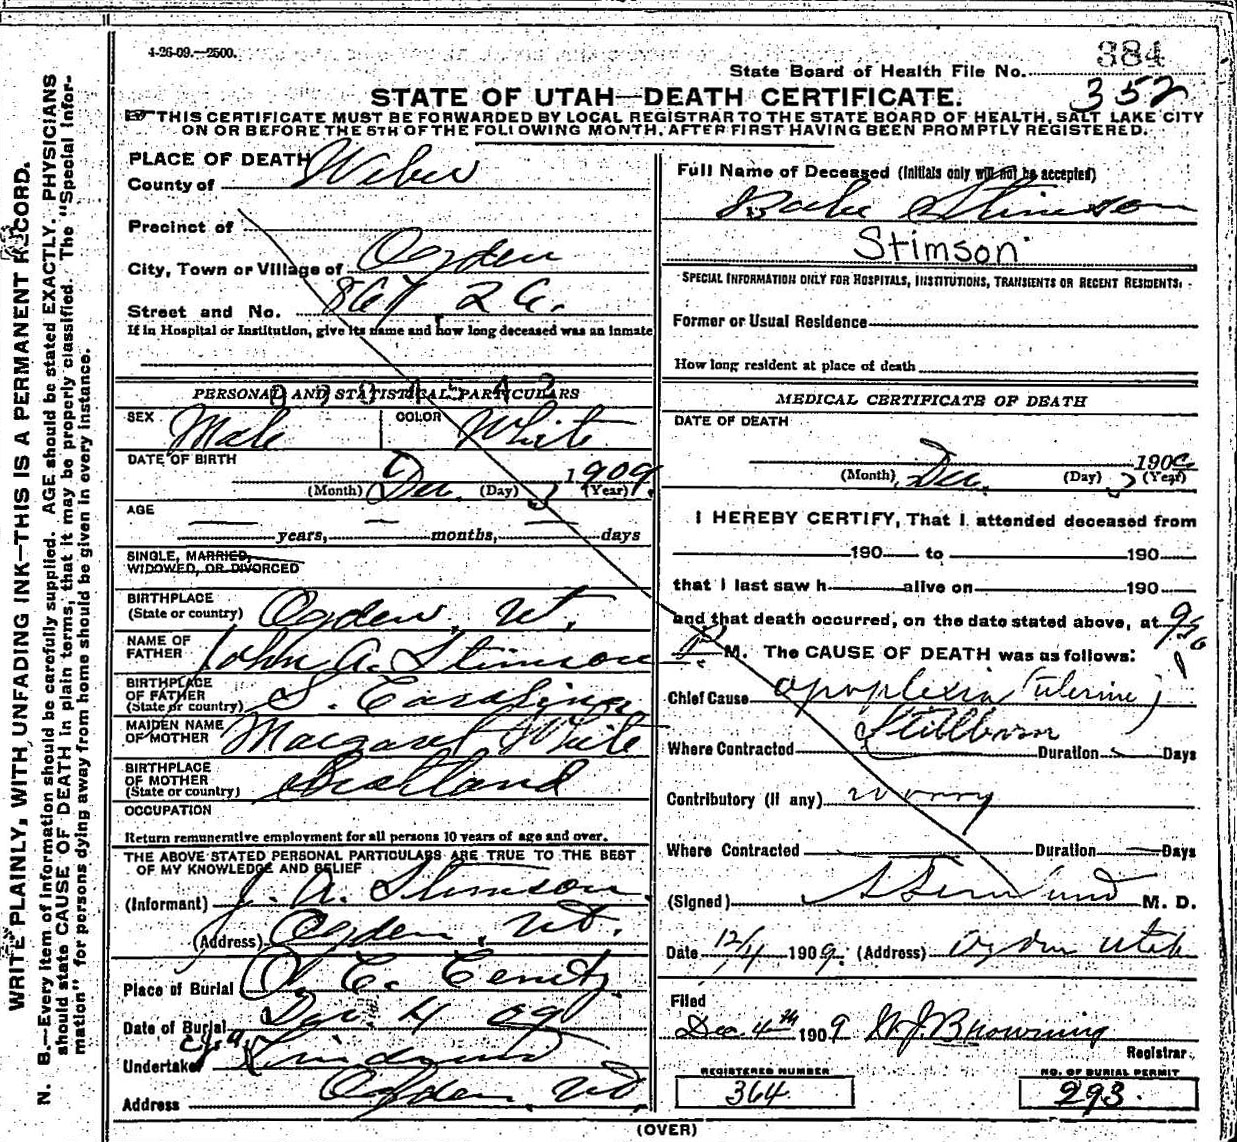 4-26-09.—2500.
384
State Board of Health File No.
352
STATE OF UTAH—DEATH CERTIFICATE.
THIS CERTIFICATE MUST BE FORWARDED BY LOCAL REGISTRAR TO THE STATE BOARD OF HEALTH, SALT LAKE CITY
ON OR BEFORE THE 5TH OF THE FOLLOWING MONTH, AFTER FIRST HAVING BEEN PROMPTLY REGISTERED.
WRITE PLAINLY, WITH UNFADING INK—THIS IS A PERMANENT RECORD.
N. B.—Every item of information should be carefully supplied. AGE should be stated EXACTLY. PHYSICIANS
should state CAUSE OF DEATH in plain terms, that it may be properly classified. The "Special Infor-
mation" for persons dying away from home should be given in every instance.
PLACE OF DEATH
County of Weber
Precinct of
City, Town or Village of Ogden
Street and No. 867 26.
If in Hospital or Institution, give its name and how long deceased was an inmate
PERSONAL AND STATISTICAL PARTICULARS
SEX Male COLOR White
DATE OF BIRTH
1909.
(Month) Dec. (Day) 3 (Year)
AGE
years, months, days
SINGLE, MARRIED,
WIDOWED, OR DIVORCED
BIRTHPLACE
(State or country) Ogden, Ut.
NAME OF
FATHER John A. Stimson
BIRTHPLACE
OF FATHER
(State or country) S. Carolina
MAIDEN NAME
OF MOTHER Margaret White
BIRTHPLACE
OF MOTHER
(State or country) Scotland
OCCUPATION
Return remunerative employment for all persons 10 years of age and over.
THE ABOVE STATED PERSONAL PARTICULARS ARE TRUE TO THE BEST
OF MY KNOWLEDGE AND BELIEF
(Informant) J. A. Stimson
(Address) Ogden, Ut.
Place of Burial
Date of Burial Dec 4 09
Undertaker
Address Ogden, Ut.
Full Name of Deceased (Initials only will not be accepted)
Babe Stimson
Stimson
SPECIAL INFORMATION ONLY FOR HOSPITALS, INSTITUTIONS, TRANSIENTS OR RECENT RESIDENTS.
Former or Usual Residence
How long resident at place of death
MEDICAL CERTIFICATE OF DEATH
DATE OF DEATH
1909
(Month) Dec. (Day) 3 (Year)
I HEREBY CERTIFY, That I attended deceased from
190 to 190
that I last saw h alive on 190
and that death occurred, on the date stated above, at 950
P M. The CAUSE OF DEATH was as follows:
Chief Cause apoplexia (uterine)
Stillborn
Where Contracted Duration Days
Contributory (if any) worry
Where Contracted Duration Days
(Signed) M. D.
Date 12/4 1909. (Address) Ogden Utah
Filed
Dec 4th 1909 W.J. Browning
Registrar
REGISTERED NUMBER
364
NO. OF BURIAL PERMIT
293.
(OVER)